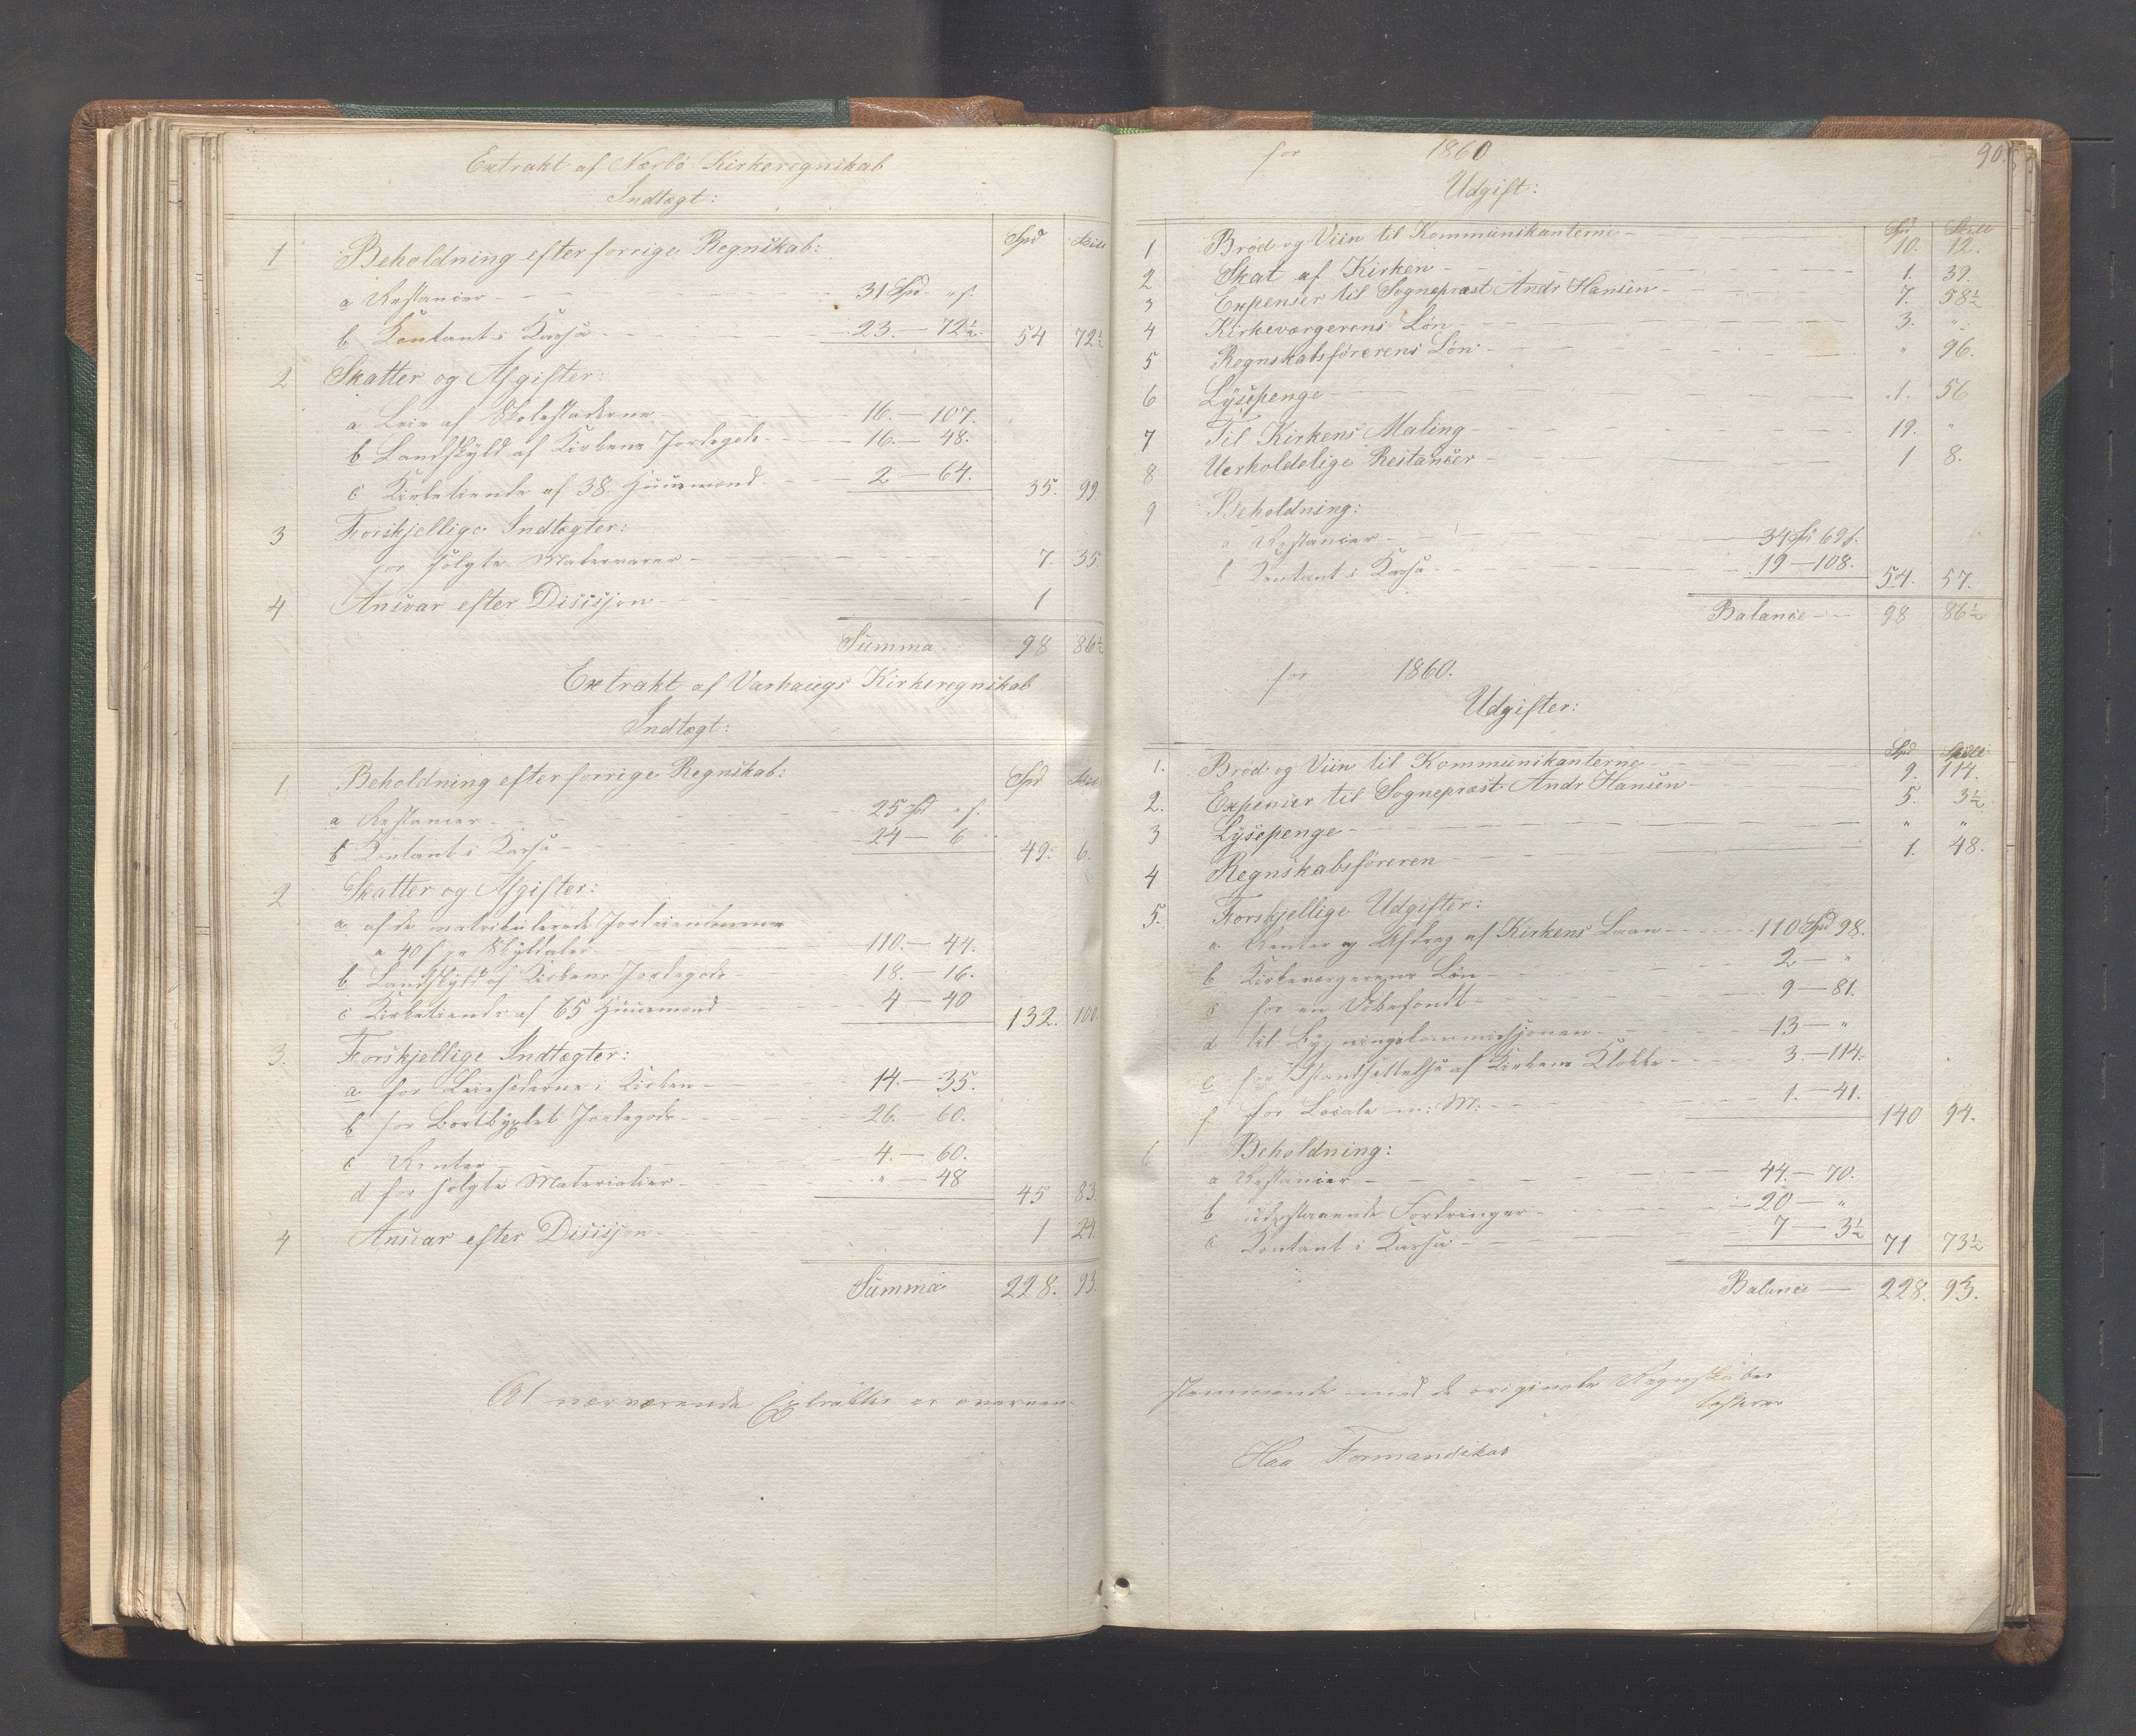 Extrakt af Nærbø Kirkeregnskab
Indtægt:
Spd Skill
1 Beholdning efter forrige Regnskab:
a Restancer 31 Spd " s.
b Contant i Kassa 23. — 72½ 54 72½
2 Skatter og Afgifter:
a Leie af Stolestaderne 16. — 107.
b Landskyld af Kirkens Jordegods 16. — 48.
c Kirketiende af 38 Huusmænd 2 — 64. 35. 99.
3 Forskjellige Indtægter:
for solgte Matervarer 7. 35.
4 Ansvar efter Disisjon 1
Summa 98 86½
Extrakt af Varhaugs Kirkeregnskab
Indtægt:
Spd Skill
1 Beholdning efter forrige Regnskab:
a Restancer 25 Spd " s.
b Contant i Kassa 24 — 6 49. 6.
2 Skatter og Afgifter:
a. af de matrikulerede Jordeiendomme
a 40 s pr Skylddaler 110. — 44.
b Landskyld af Kirkens Jordegods 18. — 16.
c Kirketiende af 65 Huusmænd 4 — 40 132. 100
3. Forskjellige Indtægter:
a for Leiestederne i Kirken 14. — 35.
b for Bortbyxlet Jordegods 26. — 60.
c Renter 4. — 60.
d for solgte Materialier " — 48 45 83.
4 Ansvar efter Disisjon 1 24.
Summa 228. 93.
At nærværende Extrakter er overeen-
for 1860 90.
Udgift:
Spd Skill
1 Brød og Viin til Kommunikanterne 10. 12.
2 Skat af Kirken 1. 39.
3 Expenser til Sognepræst Andr Hansen 7. 58½
4 Kirkeværgerens Løn 3. "
5 Regnskabsførerens Løn " 96.
6 Lysepenge 1. 56
7 Til Kirkens Maling 19. "
8 Uerholdelige Restancer 1 8.
9 Beholdning:
a Restancer 34 Sp 69 s.
b Contant i Kassa 19 — 108. 54. 57.
Balance 98 86½
for 1860.
Udgifter:
Spd Skill
1. Brød og Viin til Kommunikanterne 9. 114.
2. Expenser til Sognepræst Andr Hansen 5. 3½
3 Lysepenge " "
4 Regnskabsføreren 1. 48.
5. Forskjellige Udgifter:
a. Renter og Afdrag af Kirkens Laan 110 Spd 98.
b Kirkeværgerens Løn 2 — "
c for en Døbefondt 9 — 81.
d til Bygningskommissjonen 13 — "
e for Istandsættelse af Kirkens Klokke 3. — 114.
f for Locale m: M: 1. — 41. 140 94.
6 Beholdning:
a Restancer 44. — 70.
b udestaaende Fordringer 20 — "
c Contant i Kassa 7 — 3½ 71 73½
Balance 228. 93.
stemmende med de originale Regnskaber
Haa Formandskab